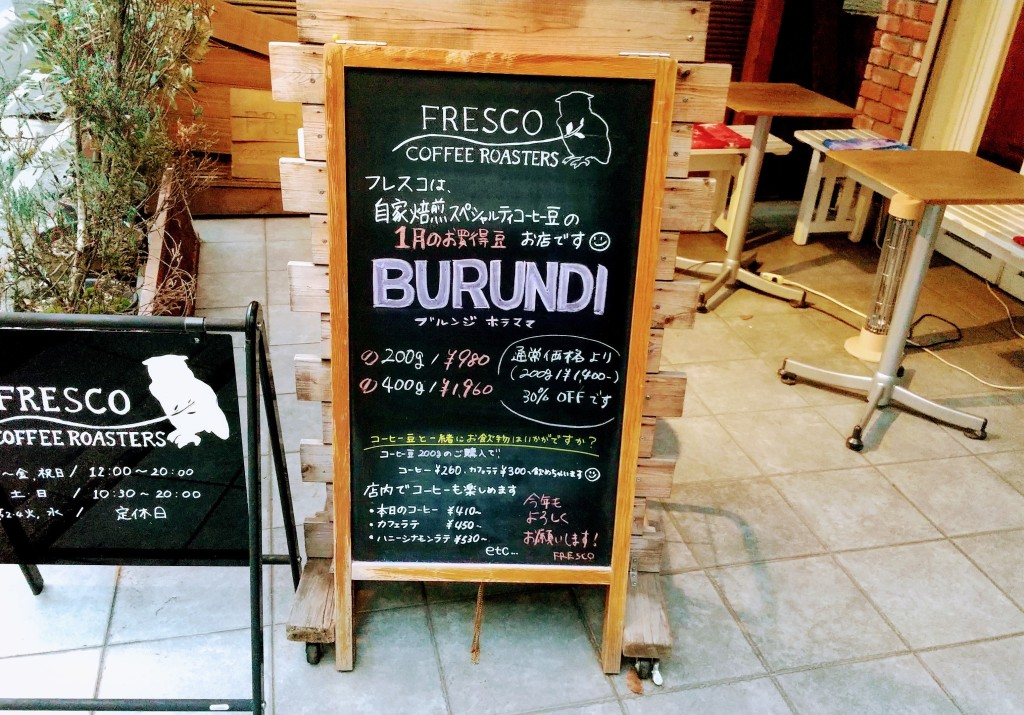 FRESCO
COFFEE ROASTERS
フレスコは、
自家焙煎スペシャルティコーヒー豆の
1月のお買得豆 お店です
BURUNDI
ブルンジ ホラママ
① 200g / ¥980
② 400g / ¥1,960
通常価格より
(200g/¥1,400-)
30% OFFです
コーヒー豆と一緒にお飲物はいかがですか?
コーヒー豆200gのご購入で!!
コーヒー¥260、カフェラテ¥300~飲めちゃいます
店内でコーヒーも楽しめます
・本日のコーヒー ¥410~
・カフェラテ ¥450~
・ハニーシナモンラテ ¥530~
etc...
今年も
よろしく
お願いします!
FRESCO
FRESCO
COFFEE ROASTERS
~金,祝日/ 12:00~20:00
土日/ 10:30~20:00
火,水/ 定休日